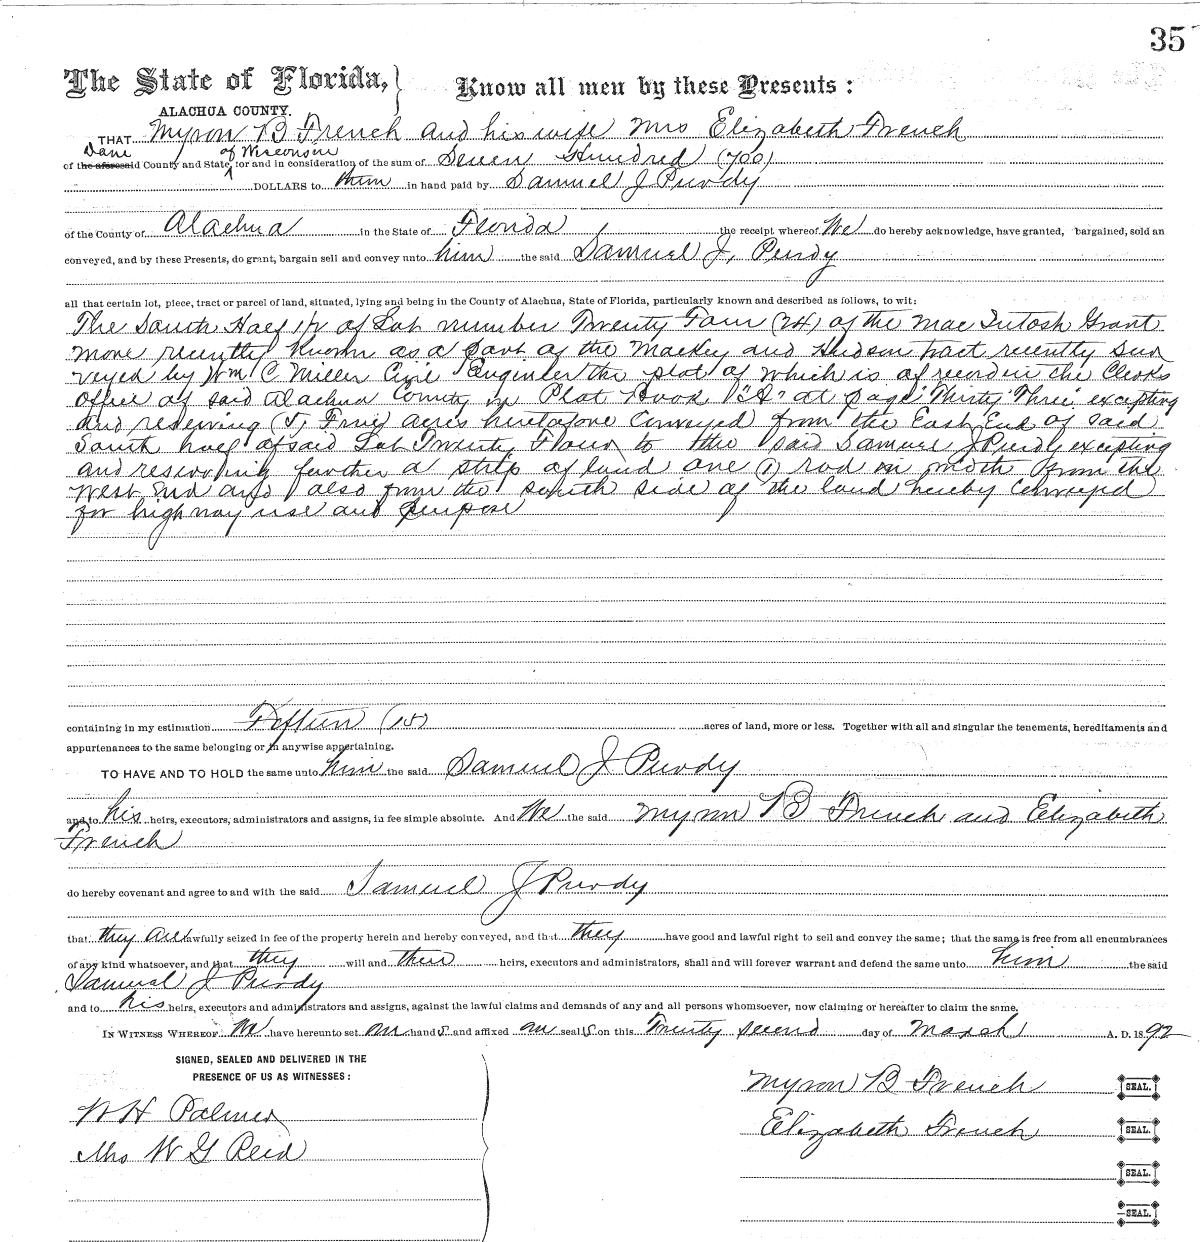 35
The State of Florida, } Know all men by these Presents :
ALACHUA COUNTY.
THAT Myron B French and his wife Mrs Elizabeth French
Dane of Wisconsin
of the aforesaid County and State, for and in consideration of the sum of Seven Hundred (700)
DOLLARS to them in hand paid by Samuel J Purdy
of the County of Alachua in the State of Florida the receipt whereof We do hereby acknowledge, have granted, bargained, sold an
conveyed, and by these Presents, do grant, bargain sell and convey unto him the said Samuel J, Purdy
all that certain lot, piece, tract or parcel of land, situated, lying and being in the County of Alachua, State of Florida, particularly known and described as follows, to wit:
The South Half 1/2 of Lot number Twenty Four (24) of the Mac Intosh Grant
more recently known as a part of the Mackey and Hudson tract recently sur
veyed by Wm C Miller Civil Engineer the plot of which is of record in the Clerks
Office of said Alachua County in Plat Book "A" at page Thirty Three excepting
and reserving (5) Five acres heretofore conveyed from the East End of said
South half of said Lot Twenty Four to the said Samuel J Purdy excepting
and reserving further a strip of land one (1) rod in width from the
West End and also from the south side of the land hereby conveyed
for highway use and purpose
containing in my estimation Fifteen (15) acres of land, more or less. Together with all and singular the tenements, hereditaments and
appurtenances to the same belonging or in anywise appertaining.
TO HAVE AND TO HOLD the same unto him the said Samuel J Purdy
and to his heirs, executors, administrators and assigns, in fee simple absolute. And We the said Myron B French and Elizabeth
French
do hereby covenant and agree to and with the said Samuel J Purdy
that they are lawfully seized in fee of the property herein and hereby conveyed, and that they have good and lawful right to sell and convey the same; that the same is free from all encumbrances
of any kind whatsoever, and that they will and their heirs, executors and administrators, shall and will forever warrant and defend the same unto him the said
Samuel J Purdy
and to his heirs, executors and administrators and assigns, against the lawful claims and demands of any and all persons whomsoever, now claiming or hereafter to claim the same.
IN WITNESS WHEREOF We have hereunto set our hands and affixed our seals on this Twenty second day of March A. D. 1892
SIGNED, SEALED AND DELIVERED IN THE
PRESENCE OF US AS WITNESSES :
W H Palmer
Mrs W G Reid
Myron B French SEAL.
Elizabeth French SEAL.
SEAL.
SEAL.